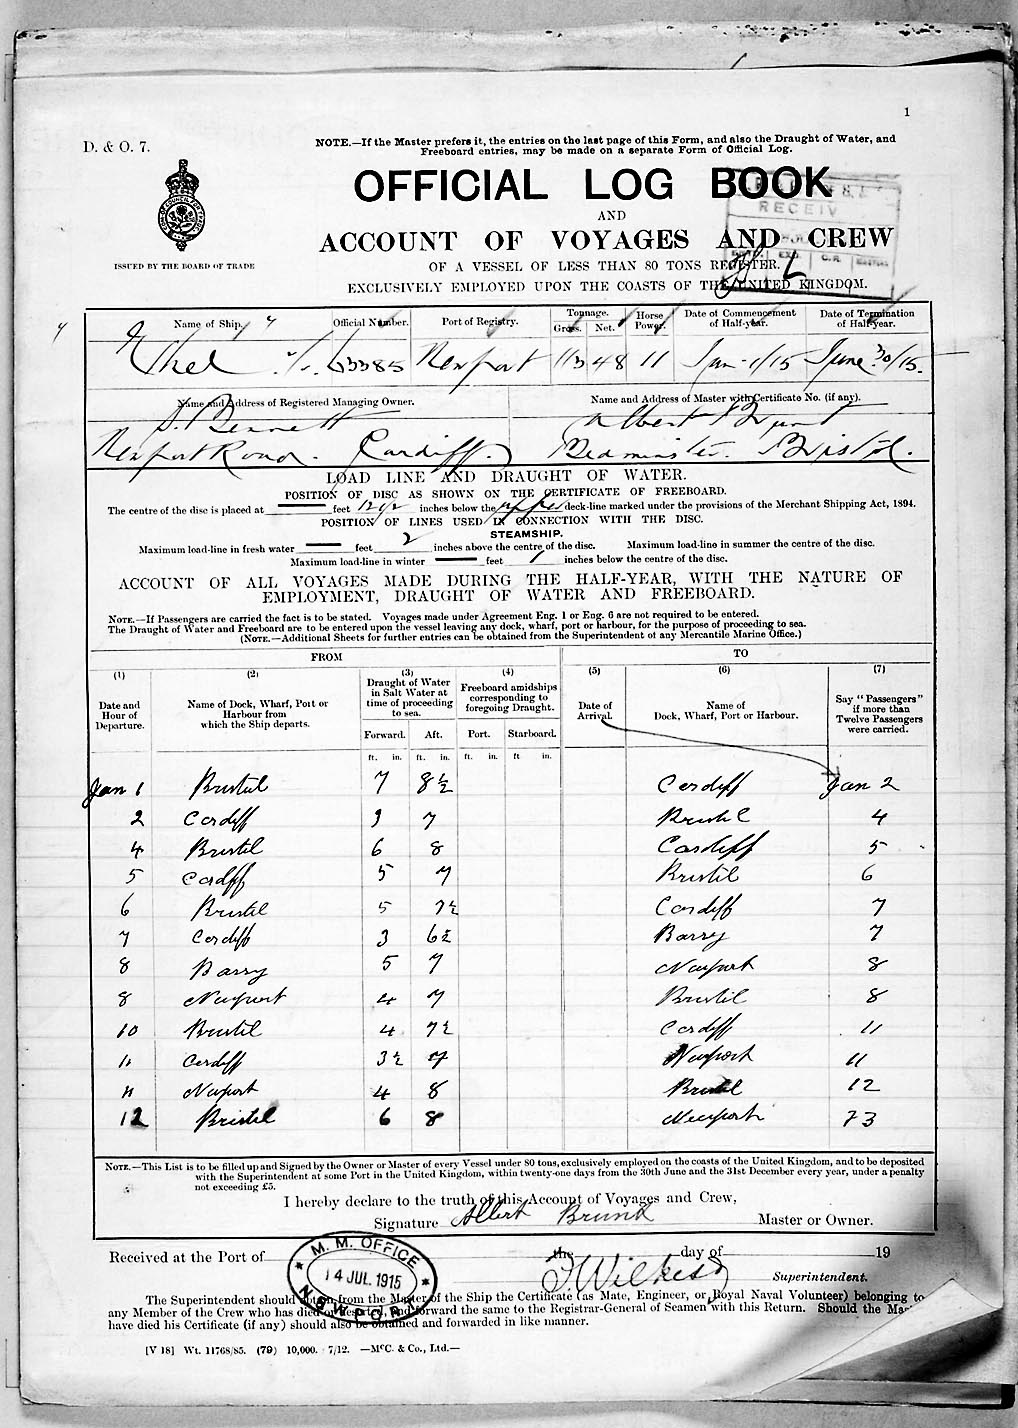 1
D. & O. 7.
NOTE.—If the Master prefers it, the entries on the last page of this Form, and also the Draught of Water, and
Freeboard entries, may be made on a separate Form of Official Log.
OFFICIAL LOG BOOK
AND
ACCOUNT OF VOYAGES AND CREW
ISSUED BY THE BOARD OF TRADE
OF A VESSEL OF LESS THAN 80 TONS REGISTER.
EXCLUSIVELY EMPLOYED UPON THE COASTS OF THE UNITED KINGDOM.
RECEIV
Name of Ship. Official Number. Port of Registry. Tonnage. Gross. Net. Horse Power. Date of Commencement of Half-year. Date of Termination of Half-year.
Ethel 63385 Newport 113 48 11 Jan - 1/15 June 30/15.
Name and Address of Registered Managing Owner. Name and Address of Master with Certificate No. (if any).
S. Bennett Albert Brund
Newport Road. Cardiff. Bedminster. Bristol.
LOAD LINE AND DRAUGHT OF WATER.
POSITION OF DISC AS SHOWN ON THE CERTIFICATE OF FREEBOARD.
The centre of the disc is placed at feet inches below the upper deck-line marked under the provisions of the Merchant Shipping Act, 1894.
POSITION OF LINES USED IN CONNECTION WITH THE DISC.
STEAMSHIP.
Maximum load-line in fresh water — feet 2 inches above the centre of the disc. Maximum load-line in summer the centre of the disc.
Maximum load-line in winter — feet 1 inches below the centre of the disc.
ACCOUNT OF ALL VOYAGES MADE DURING THE HALF-YEAR, WITH THE NATURE OF
EMPLOYMENT, DRAUGHT OF WATER AND FREEBOARD.
NOTE.—If Passengers are carried the fact is to be stated. Voyages made under Agreement Eng. 1 or Eng. 6 are not required to be entered.
The Draught of Water and Freeboard are to be entered upon the vessel leaving any dock, wharf, port or harbour, for the purpose of proceeding to sea.
(NOTE.—Additional Sheets for further entries can be obtained from the Superintendent of any Mercantile Marine Office.)
FROM TO
(1) (2) (3) (4) (5) (6) (7)
Date and Hour of Departure. Name of Dock, Wharf, Port or Harbour from which the Ship departs. Draught of Water in Salt Water at time of proceeding to sea. Freeboard amidships corresponding to foregoing Draught. Date of Arrival. Name of Dock, Wharf, Port or Harbour. Say "Passengers" if more than Twelve Passengers were carried.
Forward. Aft. Port. Starboard.
ft. in. ft. in. ft. in. ft in.
Jan 1 Bristol 7 8½ Cardiff Jan 2
2 Cardiff 3 7 Bristol 4
4 Bristol 6 8 Cardiff 5
5 Cardiff 5 7 Bristol 6
6 Bristol 5 7½ Cardiff 7
7 Cardiff 3 6½ Barry 7
8 Barry 5 7 Newport 8
8 Newport 4 7 Bristol 8
10 Bristol 4 7½ Cardiff 11
11 Cardiff 3½ 7 Newport 11
11 Newport 4 8 Bristol 12
12 Bristol 6 8 Newport 73
NOTE.—This List is to be filled up and Signed by the Owner or Master of every Vessel under 80 tons, exclusively employed on the coasts of the United Kingdom, and to be deposited
with the Superintendent at some Port in the United Kingdom, within twenty-one days from the 30th June and the 31st December every year, under a penalty
not exceeding £5.
I hereby declare to the truth of this Account of Voyages and Crew,
Signature Albert Brund Master or Owner.
Received at the Port of the day of 19
M. M. OFFICE
14 JUL 1915
NEWPORT
Wilkes Superintendent.
The Superintendent should obtain from the Master of the Ship the Certificate (as Mate, Engineer, or Royal Naval Volunteer) belonging to
any Member of the Crew who has died or deserted, and forward the same to the Registrar-General of Seamen with this Return. Should the
have died his Certificate (if any) should also be obtained and forwarded in like manner.
[V 18] Wt. 11768/85. (79) 10,000. 7/12. —McC. & Co., Ltd.—